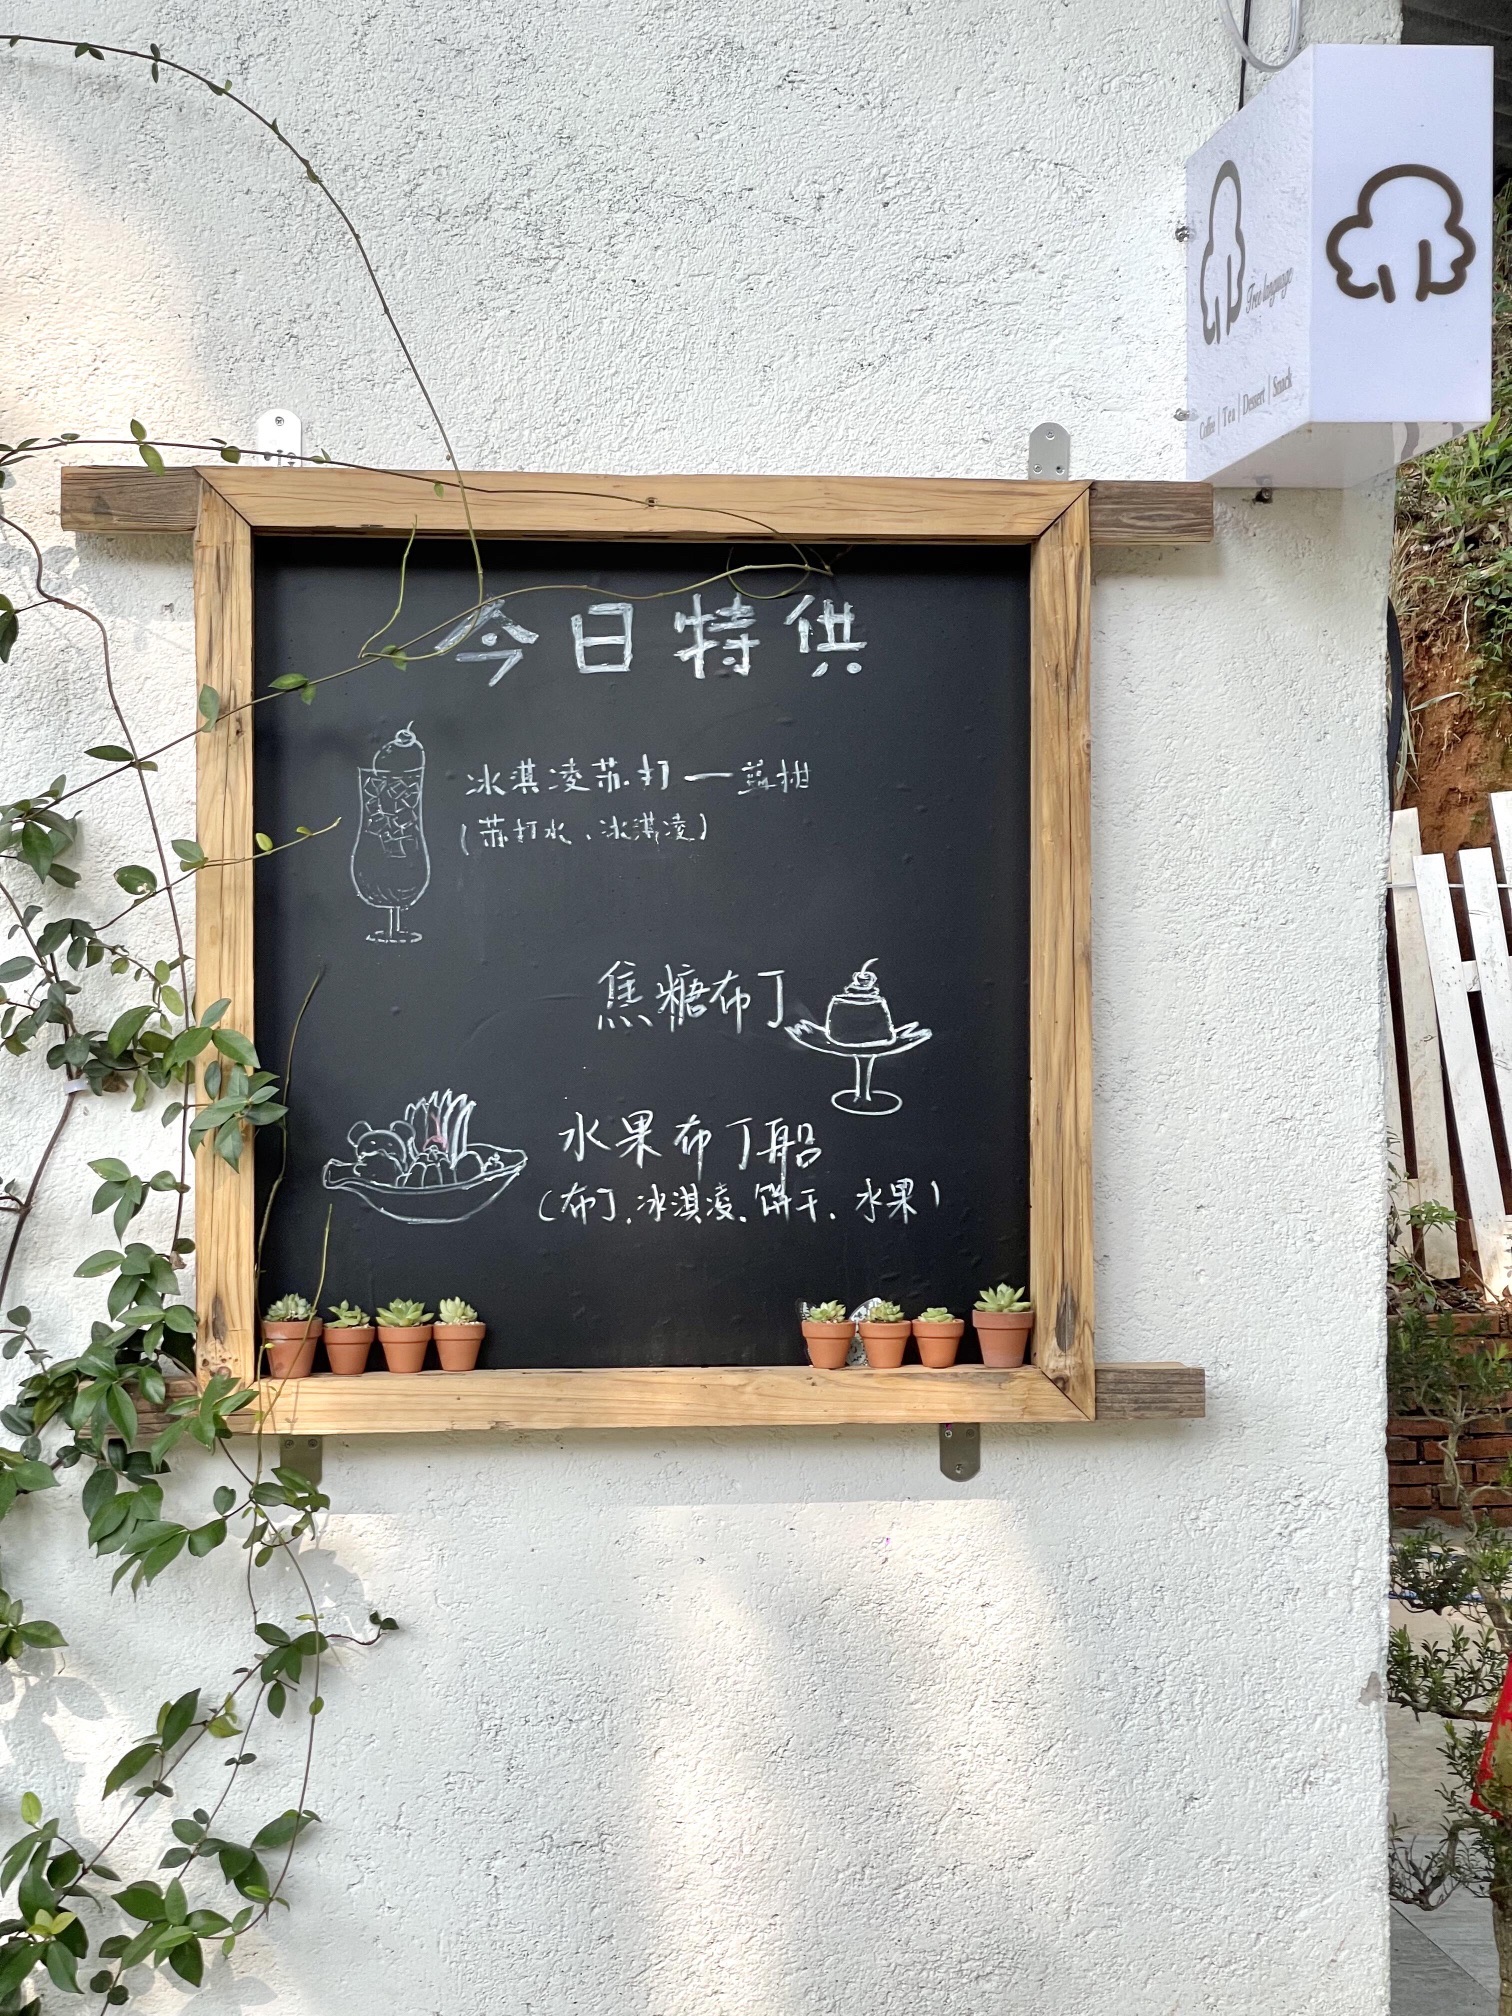 今日特供
冰淇凌苏打一蓝柑
(苏打水、冰淇凌)
焦糖布丁
水果布丁船
(布丁、冰淇凌、饼干、水果)
Tree language
Coffee | Tea | Dessert | Snack